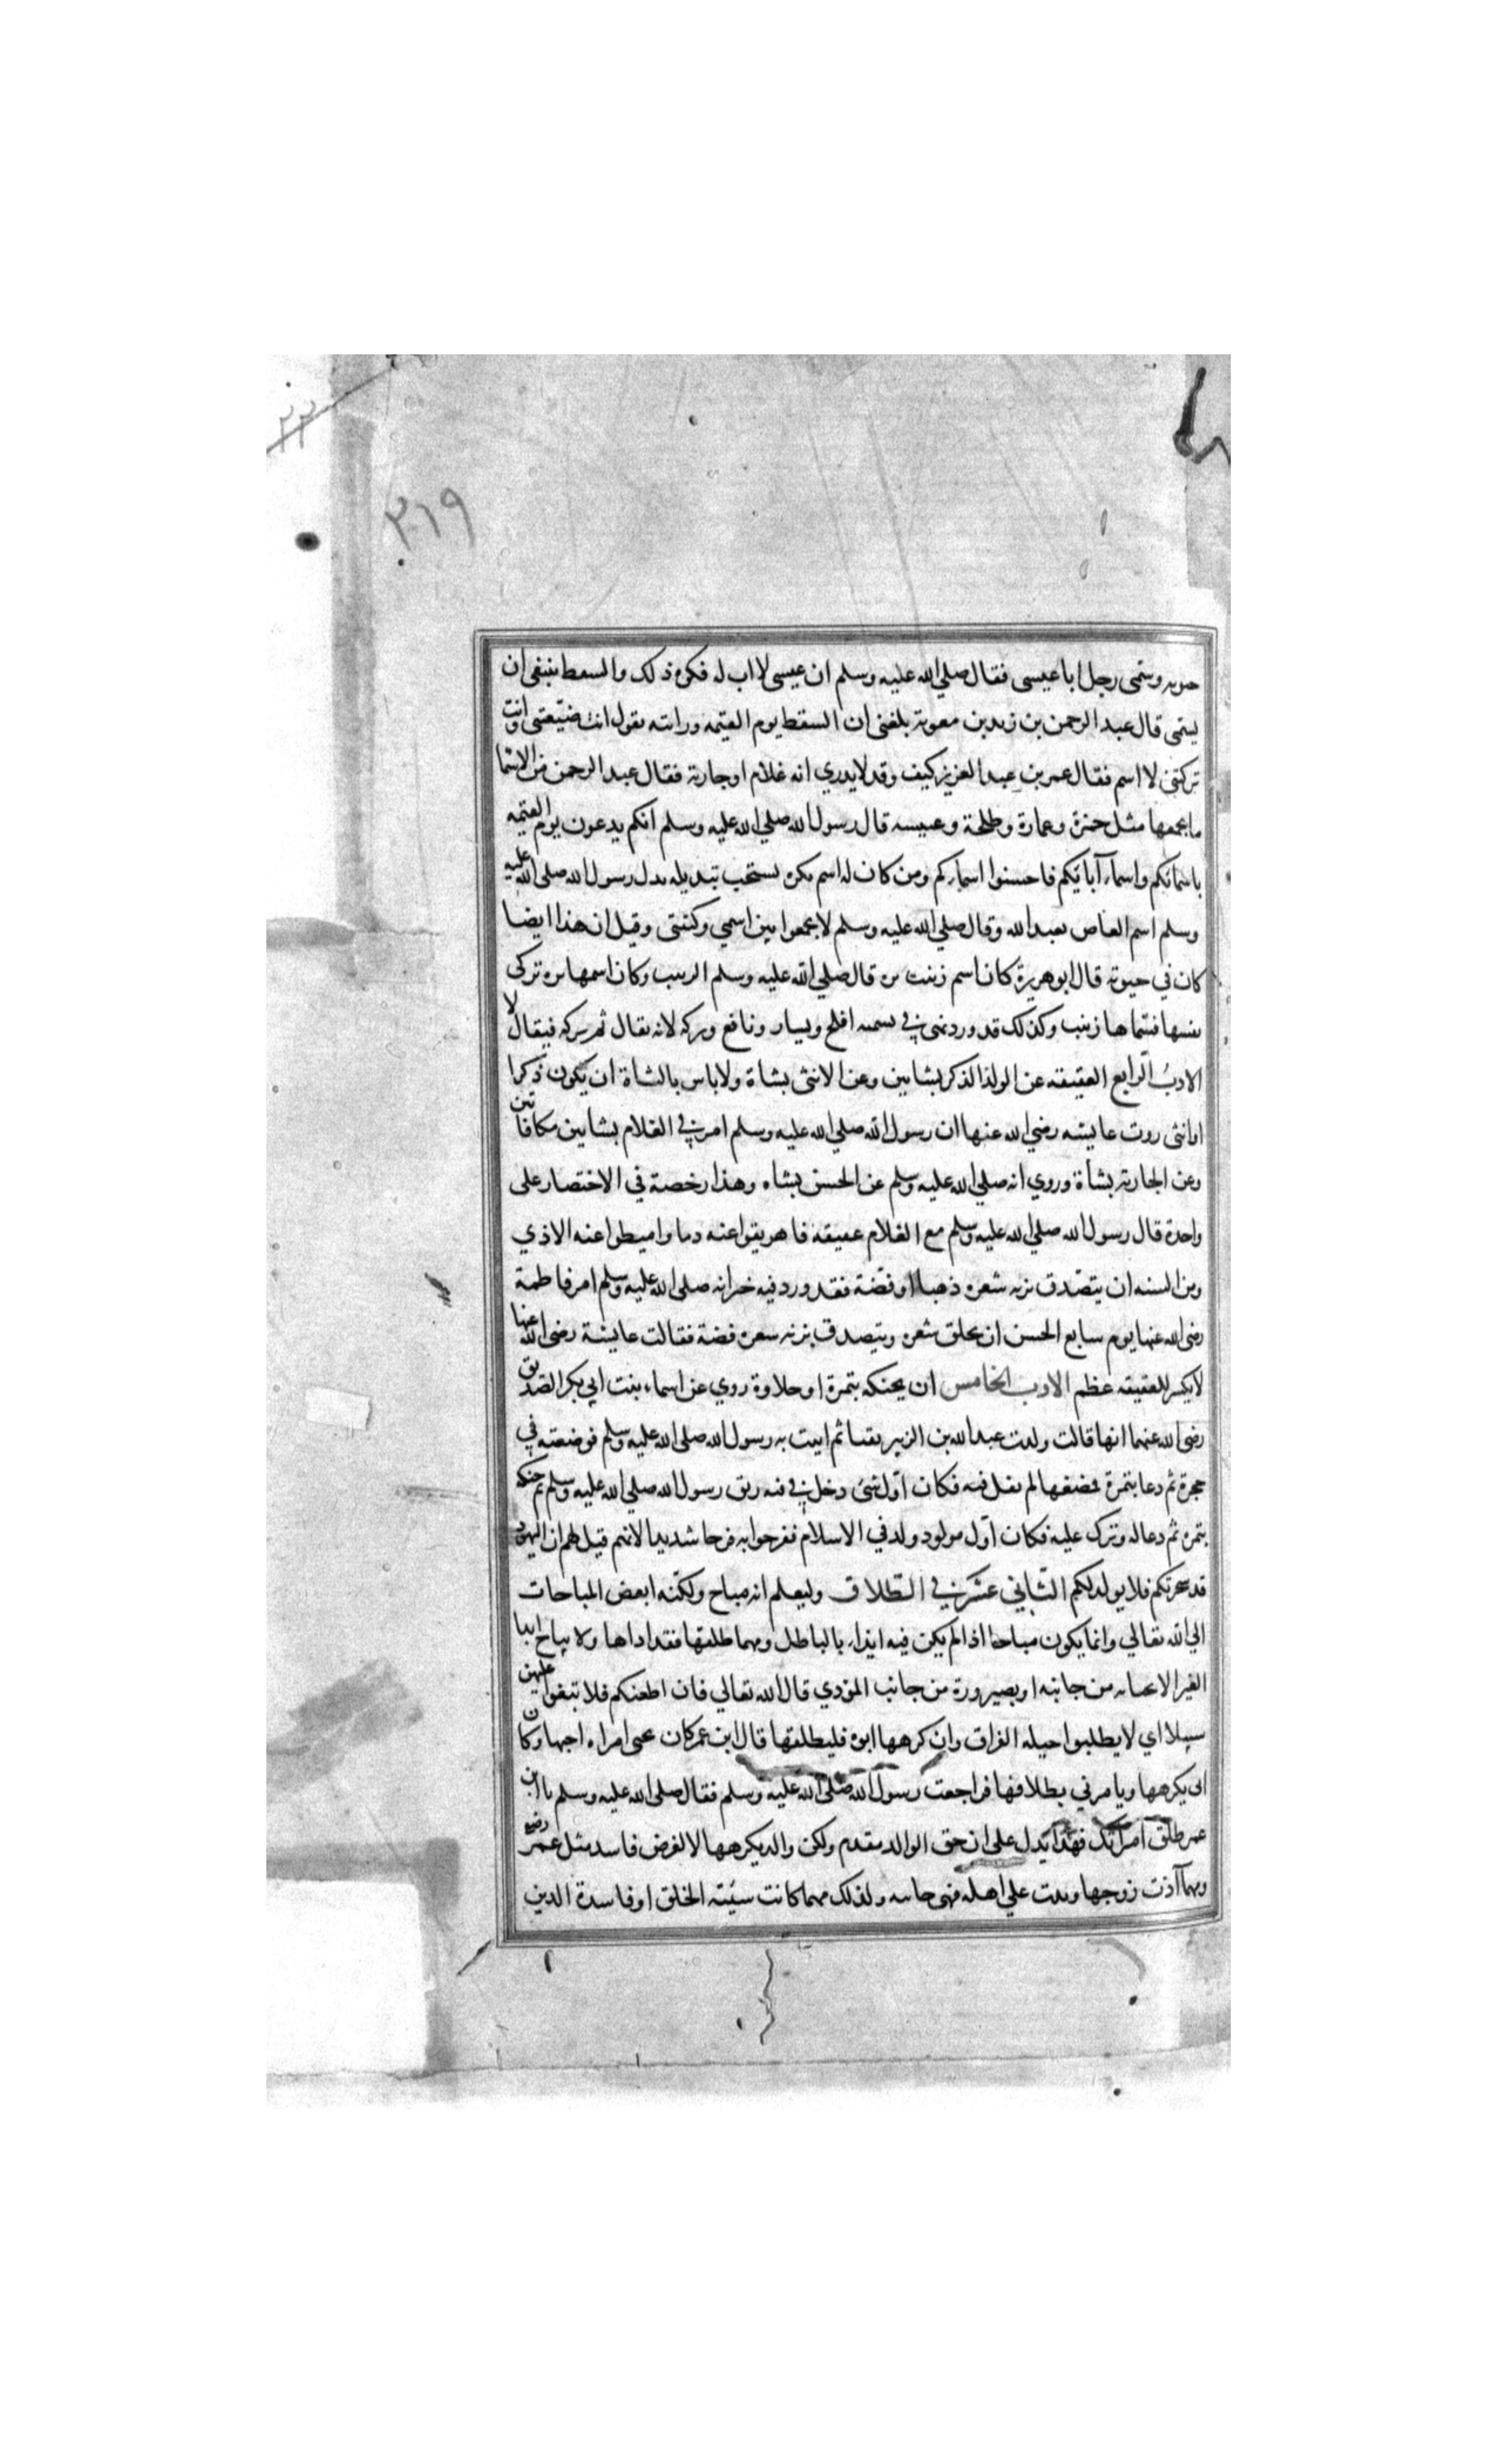 ٣١٩
حيوته وسمى رجل ابا عيسى فقال صلي الله عليه وسلم ان عيسى لا اب له فكره ذلك والسقط ينبغى ان
يسمى قال عبد الرحمن بن زيد بن معوية بلغنى ان السقط يوم القيمه ورا ابيه يقول انت ضيعتنى وانت
تركتنى لا اسم فقال عمر بن عبد العزيز كيف وقد لا يدري انه غلام او جارية فقال عبد الرحمن من الاسما
ما يجمعها مثل حمزة وعمارة وطلحة وعبيسه قال رسول الله صلي الله عليه وسلم انكم يدعون يوم القيمه
باسمائكم واسماء آبائكم فاحسنوا اسماءكم ومن كان له اسم يكره يستحب تبديله بدل رسول الله صلى الله عليه
وسلم اسم العاص بعبد الله وقال صلي الله عليه وسلم لا تجمعوا بين اسمي وكنيتى وقيل ان هذا ايضا
كان في حيوته قال ابو هريرة كان اسم زينب بره قال صلي الله عليه وسلم الزينب وكان اسمها بره تزكى
نفسها فسماها زينب وكذلك قد ورد نهى في تسميه افلح ويسار ونافع وبركه لانه يقال ثم بركه فيقال لا
الادب الرابع العقيقه عن الولد الذكر بشاتين وعن الانثى بشاة ولا باس بالشاة ان يكون ذكرا
او انثى روت عايشه رضي الله عنها ان رسول الله صلي الله عليه وسلم امر في الغلام بشاتين مكافاتين
وعن الجارية بشأة وروي انه صلي الله عليه وسلم عن الحسن بشاه وهذا رخصة في الاختصار على
واحدة قال رسول الله صلي الله عليه وسلم مع الغلام عقيقه فاهريقوا عنه دما واميطوا عنه الاذي
ومن السنه ان يتصدق بزنه شعره ذهبا او فضة فقد ورد فيه خبر انه صلى الله عليه وسلم امر فاطمة
رضى الله عنها يوم سابع الحسن ان يحلق شعره ويتصدق بزنه شعره فضة فقالت عايشة رضى الله عنها
لا يكسر للعقيقه عظم الادب الخامس ان يحنكه بتمرة او حلاوة روي عن اسماء بنت ابي بكر الصديق
رضى الله عنهما انها قالت ولدت عبد الله بن الزبير بقبا ثم اتيت به رسول الله صلى الله عليه وسلم فوضعته في
حجرة ثم دعا بتمرة فمضغها ثم تفل فيه فكان اول شئ دخل في فيه ريق رسول الله صلي الله عليه وسلم ثم حنكه
بتمره ثم دعا له وترك عليه فكان اول مولود ولد في الاسلام ففرحوا به فرحا شديدا لانهم قيل لهم ان اليهود
قد سحرتكم فلا يولد لكم الثاني عشر في الطلاق وليعلم انه مباح ولكنه ابغض المباحات
الي الله تعالي وانما يكون مباحا اذا لم يكن فيه ايذاء بالباطل ومهما طلقها فقد اذاها ولا يباح ايذا
الغير الا بجنايه من جانبه او بضرورة من جانب المؤدي قال الله تعالي فان اطعنكم فلا تبغوا عليهن
سبيلا اي لا يطلبوا حيله الفراق وان كرهها ابوه فليطلقها قال ابن عمر كان تحتى امراه احبها وكان
ابى يكرهها ويامرني بطلاقها فراجعت رسول الله صلى الله عليه وسلم فقال صلى الله عليه وسلم يا ابن
عمر طلق امراتك فهذا يدل على ان حق الوالد مقدم ولكن والد يكرهها لا لغرض فاسد مثل عمر رضى
ومهما آذت زوجها وبدت علي اهله فهى جانيه ولذلك مهما كانت سيئة الخلق او فاسدة الدين